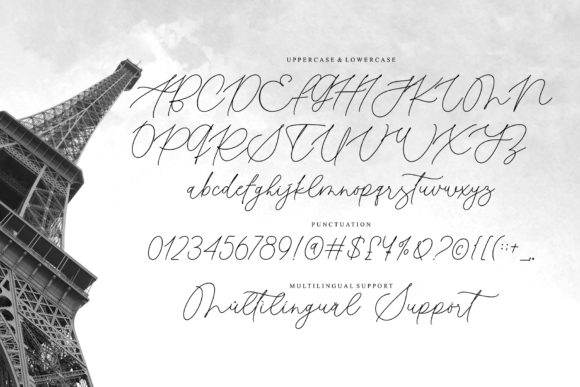 UPPERCASE & LOWERCASE
ABCDEFGHIJKLMN
OPQRSTUVWXYZ
abcdefghijklmnopqrstuvwxyz
PUNCTUATION
0123456789!@#$£¥%&?©{[(:;+_..
MULTILINGUAL SUPPORT
Multilingual Support